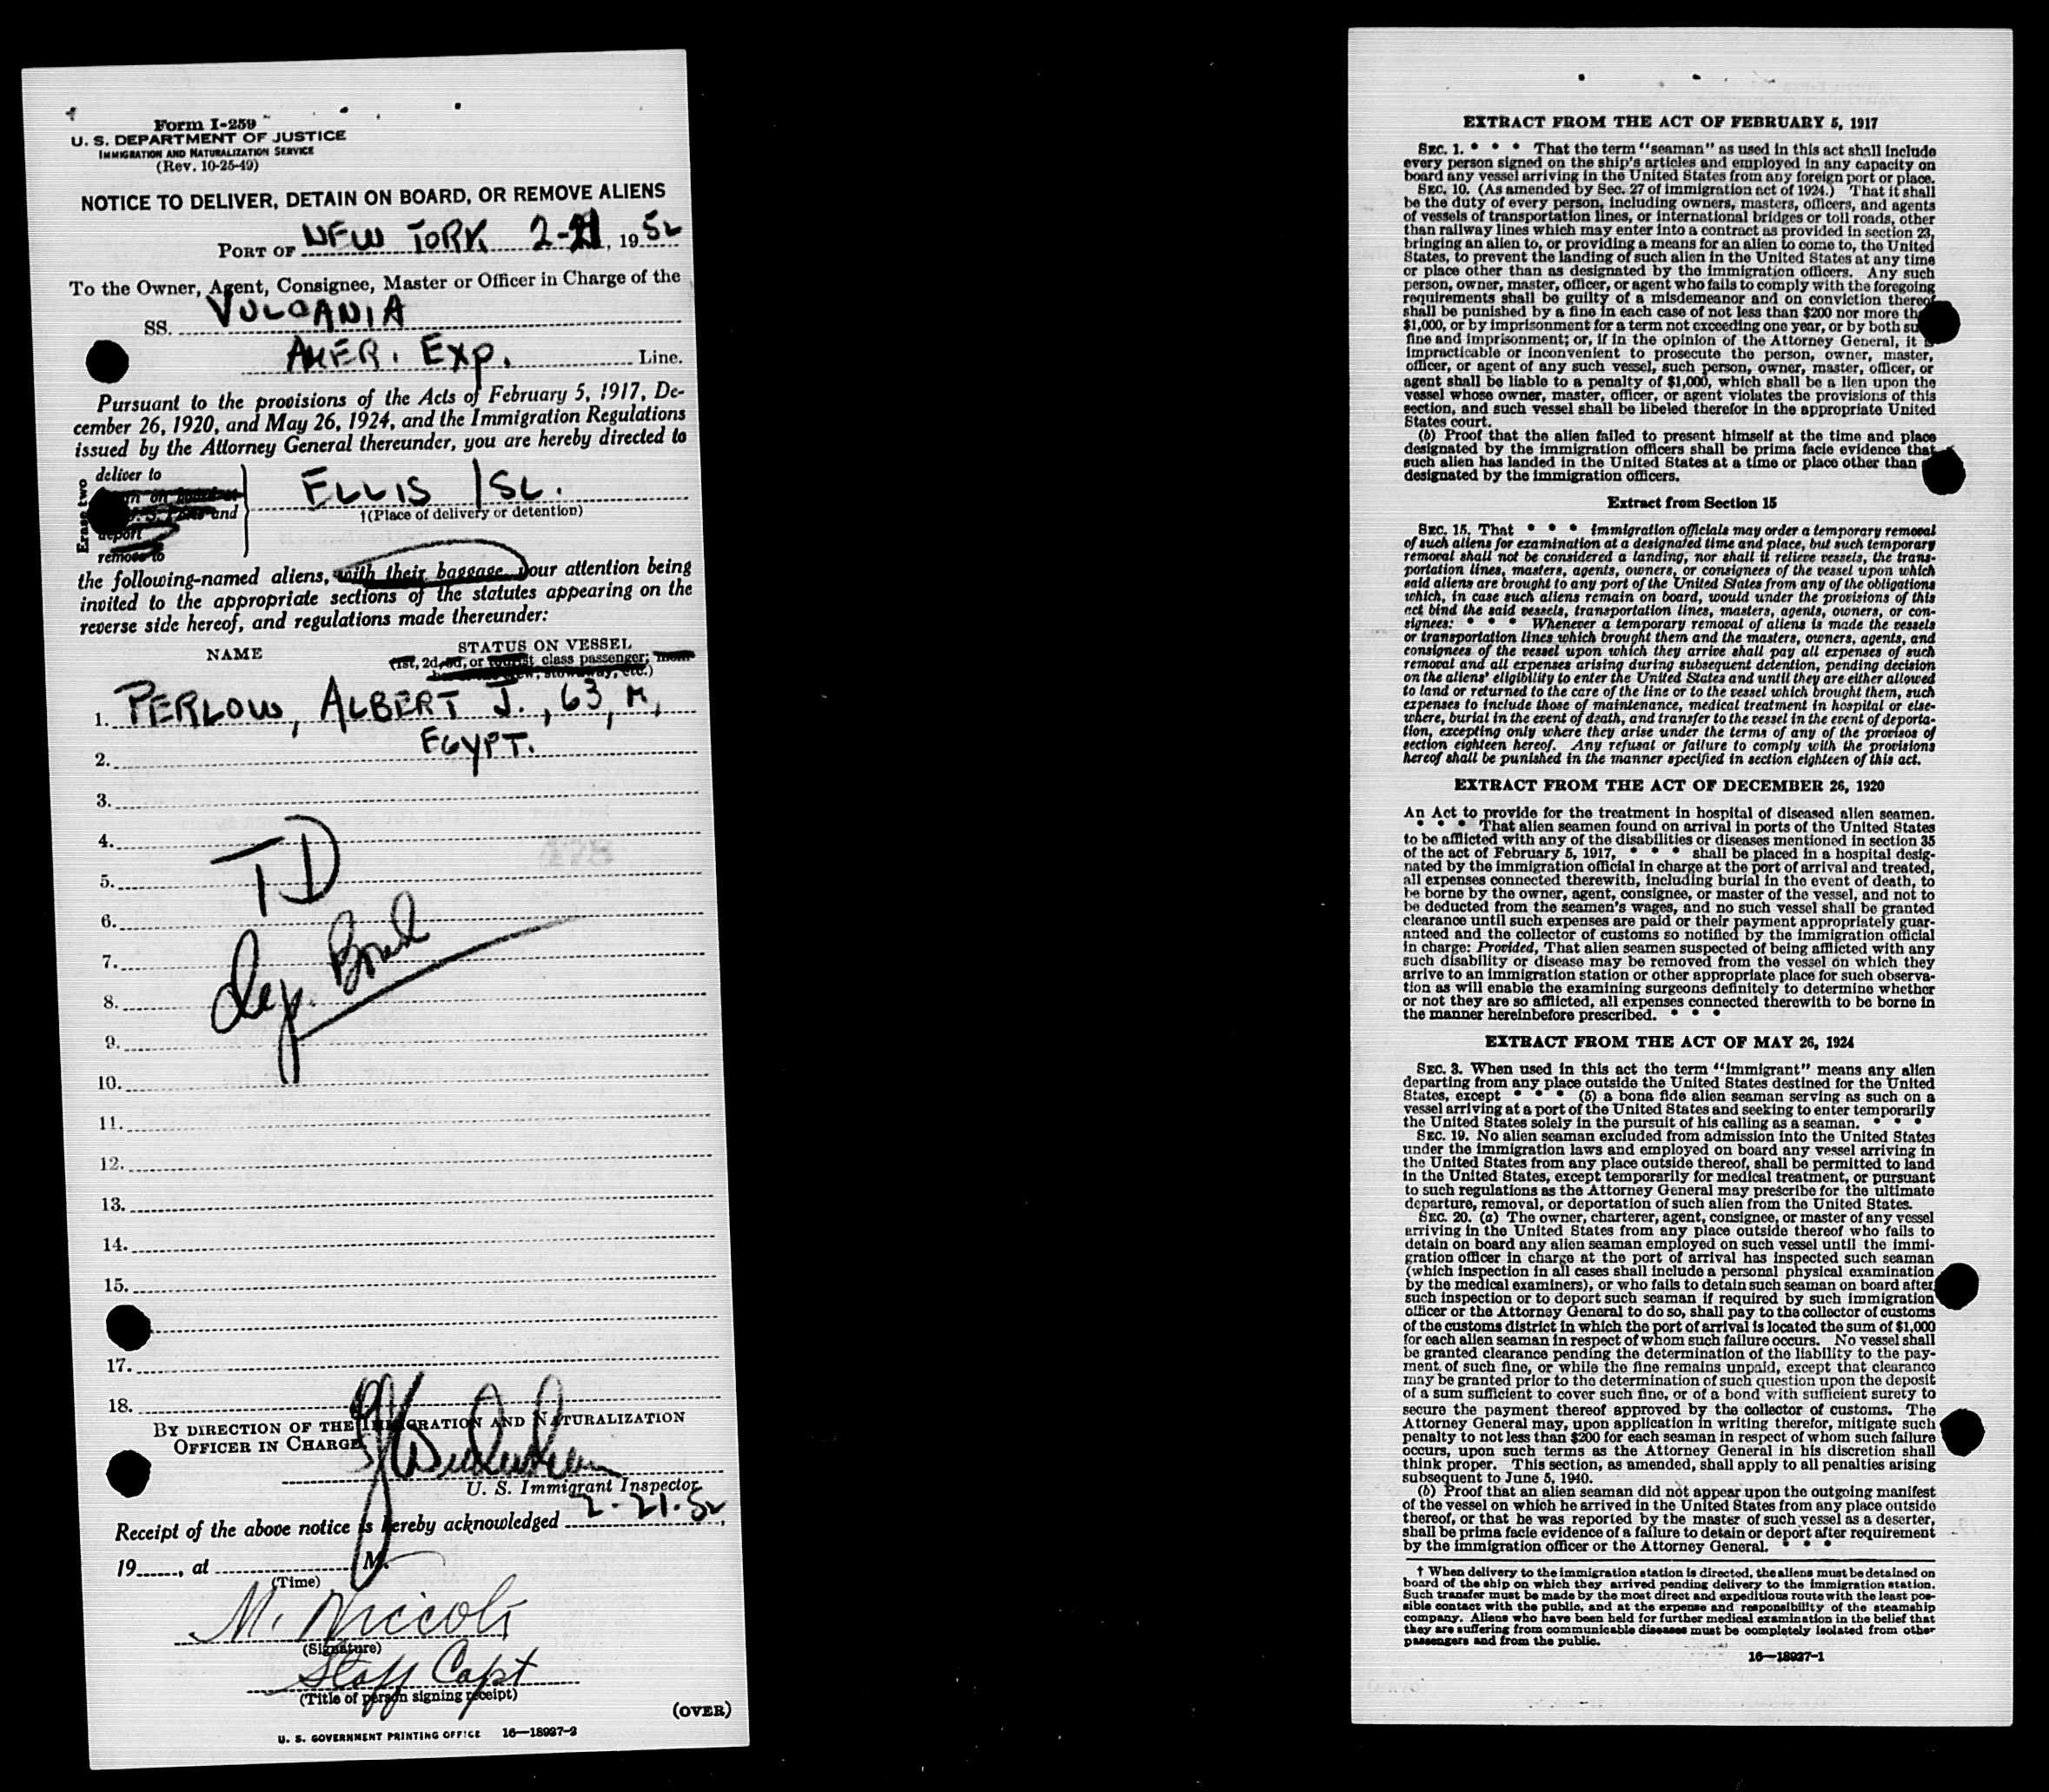 Form I-259
U. S. DEPARTMENT OF JUSTICE
IMMIGRATION AND NATURALIZATION SERVICE
(Rev. 10-25-49)
NOTICE TO DELIVER, DETAIN ON BOARD, OR REMOVE ALIENS
PORT OF NEW YORK 2-21, 1952
To the Owner, Agent, Consignee, Master or Officer in Charge of the
SS. VULCANIA
AMER. EXP. Line.
Pursuant to the provisions of the Acts of February 5, 1917, De-
cember 26, 1920, and May 26, 1924, and the Immigration Regulations
issued by the Attorney General thereunder, you are hereby directed to
Erase two
deliver to
and
deport
remove to
ELLIS ISL.
†(Place of delivery or detention)
the following-named aliens, with their baggage your attention being
invited to the appropriate sections of the statutes appearing on the
reverse side hereof, and regulations made thereunder:
NAME
STATUS ON VESSEL
(1st, 2d, 3d, or tourist class passenger;
stowaway, etc.)
1. PERLOW, ALBERT J., 63, M,
EGYPT.
2.
3.
4.
TD
5.
6.
7.
Bond
8.
9.
10.
11.
12.
13.
14.
15.
17.
18.
BY DIRECTION OF THE IMMIGRATION AND NATURALIZATION
OFFICER IN CHARGE
U. S. Immigrant Inspector.
Receipt of the above notice is hereby acknowledged 2-21-52,
19......, at M.
(Time)
M. Niccoli
(Signature)
Staff Capt
(Title of person signing receipt)
(OVER)
U. S. GOVERNMENT PRINTING OFFICE 16—18927-2
EXTRACT FROM THE ACT OF FEBRUARY 5, 1917
SEC. 1. * * * That the term "seaman" as used in this act shall include
every person signed on the ship's articles and employed in any capacity on
board any vessel arriving in the United States from any foreign port or place.
SEC. 10. (As amended by Sec. 27 of immigration act of 1924.) That it shall
be the duty of every person, including owners, masters, officers, and agents
of vessels of transportation lines, or international bridges or toll roads, other
than railway lines which may enter into a contract as provided in section 23,
bringing an alien to, or providing a means for an alien to come to, the United
States, to prevent the landing of such alien in the United States at any time
or place other than as designated by the immigration officers. Any such
person, owner, master, officer, or agent who fails to comply with the foregoing
requirements shall be guilty of a misdemeanor and on conviction thereof
shall be punished by a fine in each case of not less than $200 nor more th
$1,000, or by imprisonment for a term not exceeding one year, or by both su
fine and imprisonment; or, if in the opinion of the Attorney General, it is
impracticable or inconvenient to prosecute the person, owner, master,
officer, or agent of any such vessel, such person, owner, master, officer, or
agent shall be liable to a penalty of $1,000, which shall be a lien upon the
vessel whose owner, master, officer, or agent violates the provisions of this
section, and such vessel shall be libeled therefor in the appropriate United
States court.
(b) Proof that the alien failed to present himself at the time and place
designated by the immigration officers shall be prima facie evidence that
such alien has landed in the United States at a time or place other than
designated by the immigration officers.
Extract from Section 15
SEC. 15. That * * * immigration officials may order a temporary removal
of such aliens for examination at a designated time and place, but such temporary
removal shall not be considered a landing, nor shall it relieve vessels, the trans-
portation lines, masters, agents, owners, or consignees of the vessel upon which
said aliens are brought to any port of the United States from any of the obligations
which, in case such aliens remain on board, would under the provisions of this
act bind the said vessels, transportation lines, masters, agents, owners, or con-
signees: * * * Whenever a temporary removal of aliens is made the vessels
or transportation lines which brought them and the masters, owners, agents, and
consignees of the vessel upon which they arrive shall pay all expenses of such
removal and all expenses arising during subsequent detention, pending decision
on the aliens' eligibility to enter the United States and until they are either allowed
to land or returned to the care of the line or to the vessel which brought them, such
expenses to include those of maintenance, medical treatment in hospital or else-
where, burial in the event of death, and transfer to the vessel in the event of deporta-
tion, excepting only where they arise under the terms of any of the provisos of
section eighteen hereof. Any refusal or failure to comply with the provisions
hereof shall be punished in the manner specified in section eighteen of this act.
EXTRACT FROM THE ACT OF DECEMBER 26, 1920
An Act to provide for the treatment in hospital of diseased alien seamen.
* * * That alien seamen found on arrival in ports of the United States
to be afflicted with any of the disabilities or diseases mentioned in section 35
of the act of February 5, 1917, * * * shall be placed in a hospital desig-
nated by the immigration official in charge at the port of arrival and treated,
all expenses connected therewith, including burial in the event of death, to
be borne by the owner, agent, consignee, or master of the vessel, and not to
be deducted from the seamen's wages, and no such vessel shall be granted
clearance until such expenses are paid or their payment appropriately guar-
anteed and the collector of customs so notified by the immigration official
in charge: Provided, That alien seamen suspected of being afflicted with any
such disability or disease may be removed from the vessel on which they
arrive to an immigration station or other appropriate place for such observa-
tion as will enable the examining surgeons definitely to determine whether
or not they are so afflicted, all expenses connected therewith to be borne in
the manner hereinbefore prescribed. * * *
EXTRACT FROM THE ACT OF MAY 26, 1924
SEC. 3. When used in this act the term "immigrant" means any alien
departing from any place outside the United States destined for the United
States, except * * * (5) a bona fide alien seaman serving as such on a
vessel arriving at a port of the United States and seeking to enter temporarily
the United States solely in the pursuit of his calling as a seaman. * * *
SEC. 19. No alien seaman excluded from admission into the United States
under the immigration laws and employed on board any vessel arriving in
the United States from any place outside thereof, shall be permitted to land
in the United States, except temporarily for medical treatment, or pursuant
to such regulations as the Attorney General may prescribe for the ultimate
departure, removal, or deportation of such alien from the United States.
SEC. 20. (a) The owner, charterer, agent, consignee, or master of any vessel
arriving in the United States from any place outside thereof who fails to
detain on board any alien seaman employed on such vessel until the immi-
gration officer in charge at the port of arrival has inspected such seaman
(which inspection in all cases shall include a personal physical examination
by the medical examiners), or who fails to detain such seaman on board after
such inspection or to deport such seaman if required by such immigration
officer or the Attorney General to do so, shall pay to the collector of customs
of the customs district in which the port of arrival is located the sum of $1,000
for each alien seaman in respect of whom such failure occurs. No vessel shall
be granted clearance pending the determination of the liability to the pay-
ment of such fine, or while the fine remains unpaid, except that clearance
may be granted prior to the determination of such question upon the deposit
of a sum sufficient to cover such fine, or of a bond with sufficient surety to
secure the payment thereof approved by the collector of customs. The
Attorney General may, upon application in writing therefor, mitigate such
penalty to not less than $200 for each seaman in respect of whom such failure
occurs, upon such terms as the Attorney General in his discretion shall
think proper. This section, as amended, shall apply to all penalties arising
subsequent to June 5, 1940.
(b) Proof that an alien seaman did not appear upon the outgoing manifest
of the vessel on which he arrived in the United States from any place outside
thereof, or that he was reported by the master of such vessel as a deserter,
shall be prima facie evidence of a failure to detain or deport after requirement
by the immigration officer or the Attorney General. * * *
† When delivery to the immigration station is directed, the aliens must be detained on
board of the ship on which they arrived pending delivery to the immigration station.
Such transfer must be made by the most direct and expeditious route with the least pos-
sible contact with the public, and at the expense and responsibility of the steamship
company. Aliens who have been held for further medical examination in the belief that
they are suffering from communicable diseases must be completely isolated from other
passengers and from the public.
16—18927-1